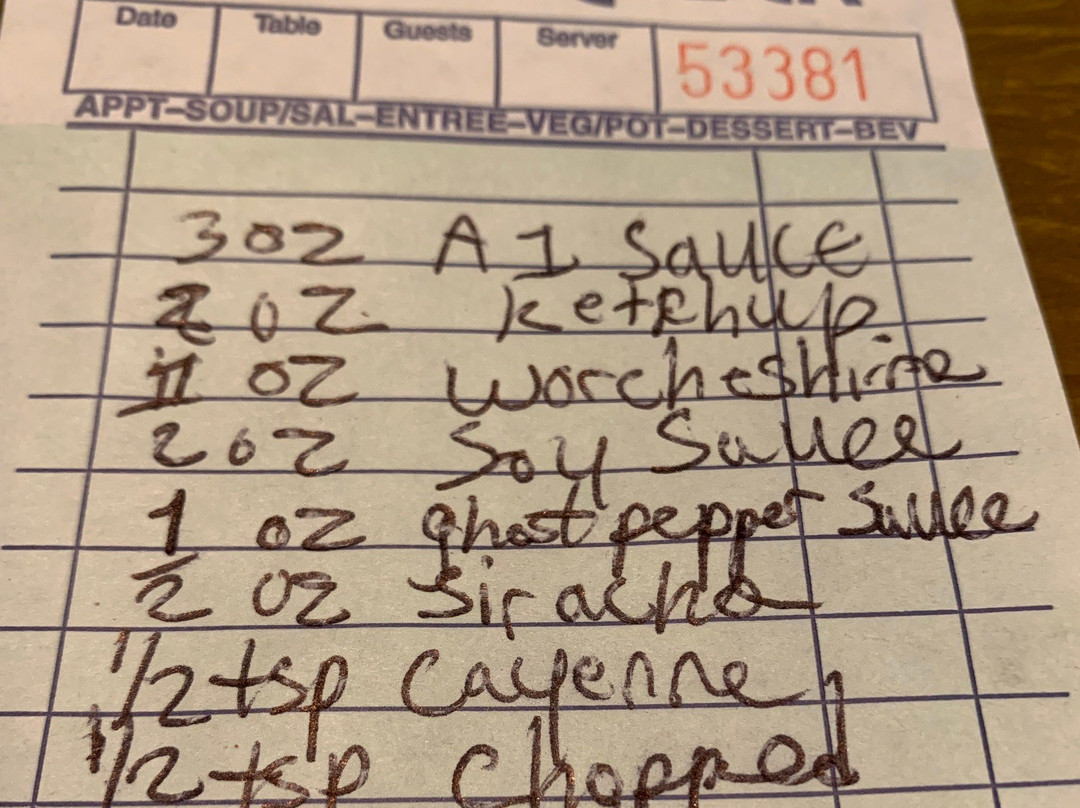 Date Table Guests Server 53381
APPT–SOUP/SAL–ENTREE–VEG/POT–DESSERT–BEV
3 oz A1 Sauce
2 oz ketchup
1 oz worcheshire
2 oz Soy Sauce
1 oz ghost pepper Sauce
2 oz Siracha
1/2 tsp Cayenne
1/2 tsp Chopped